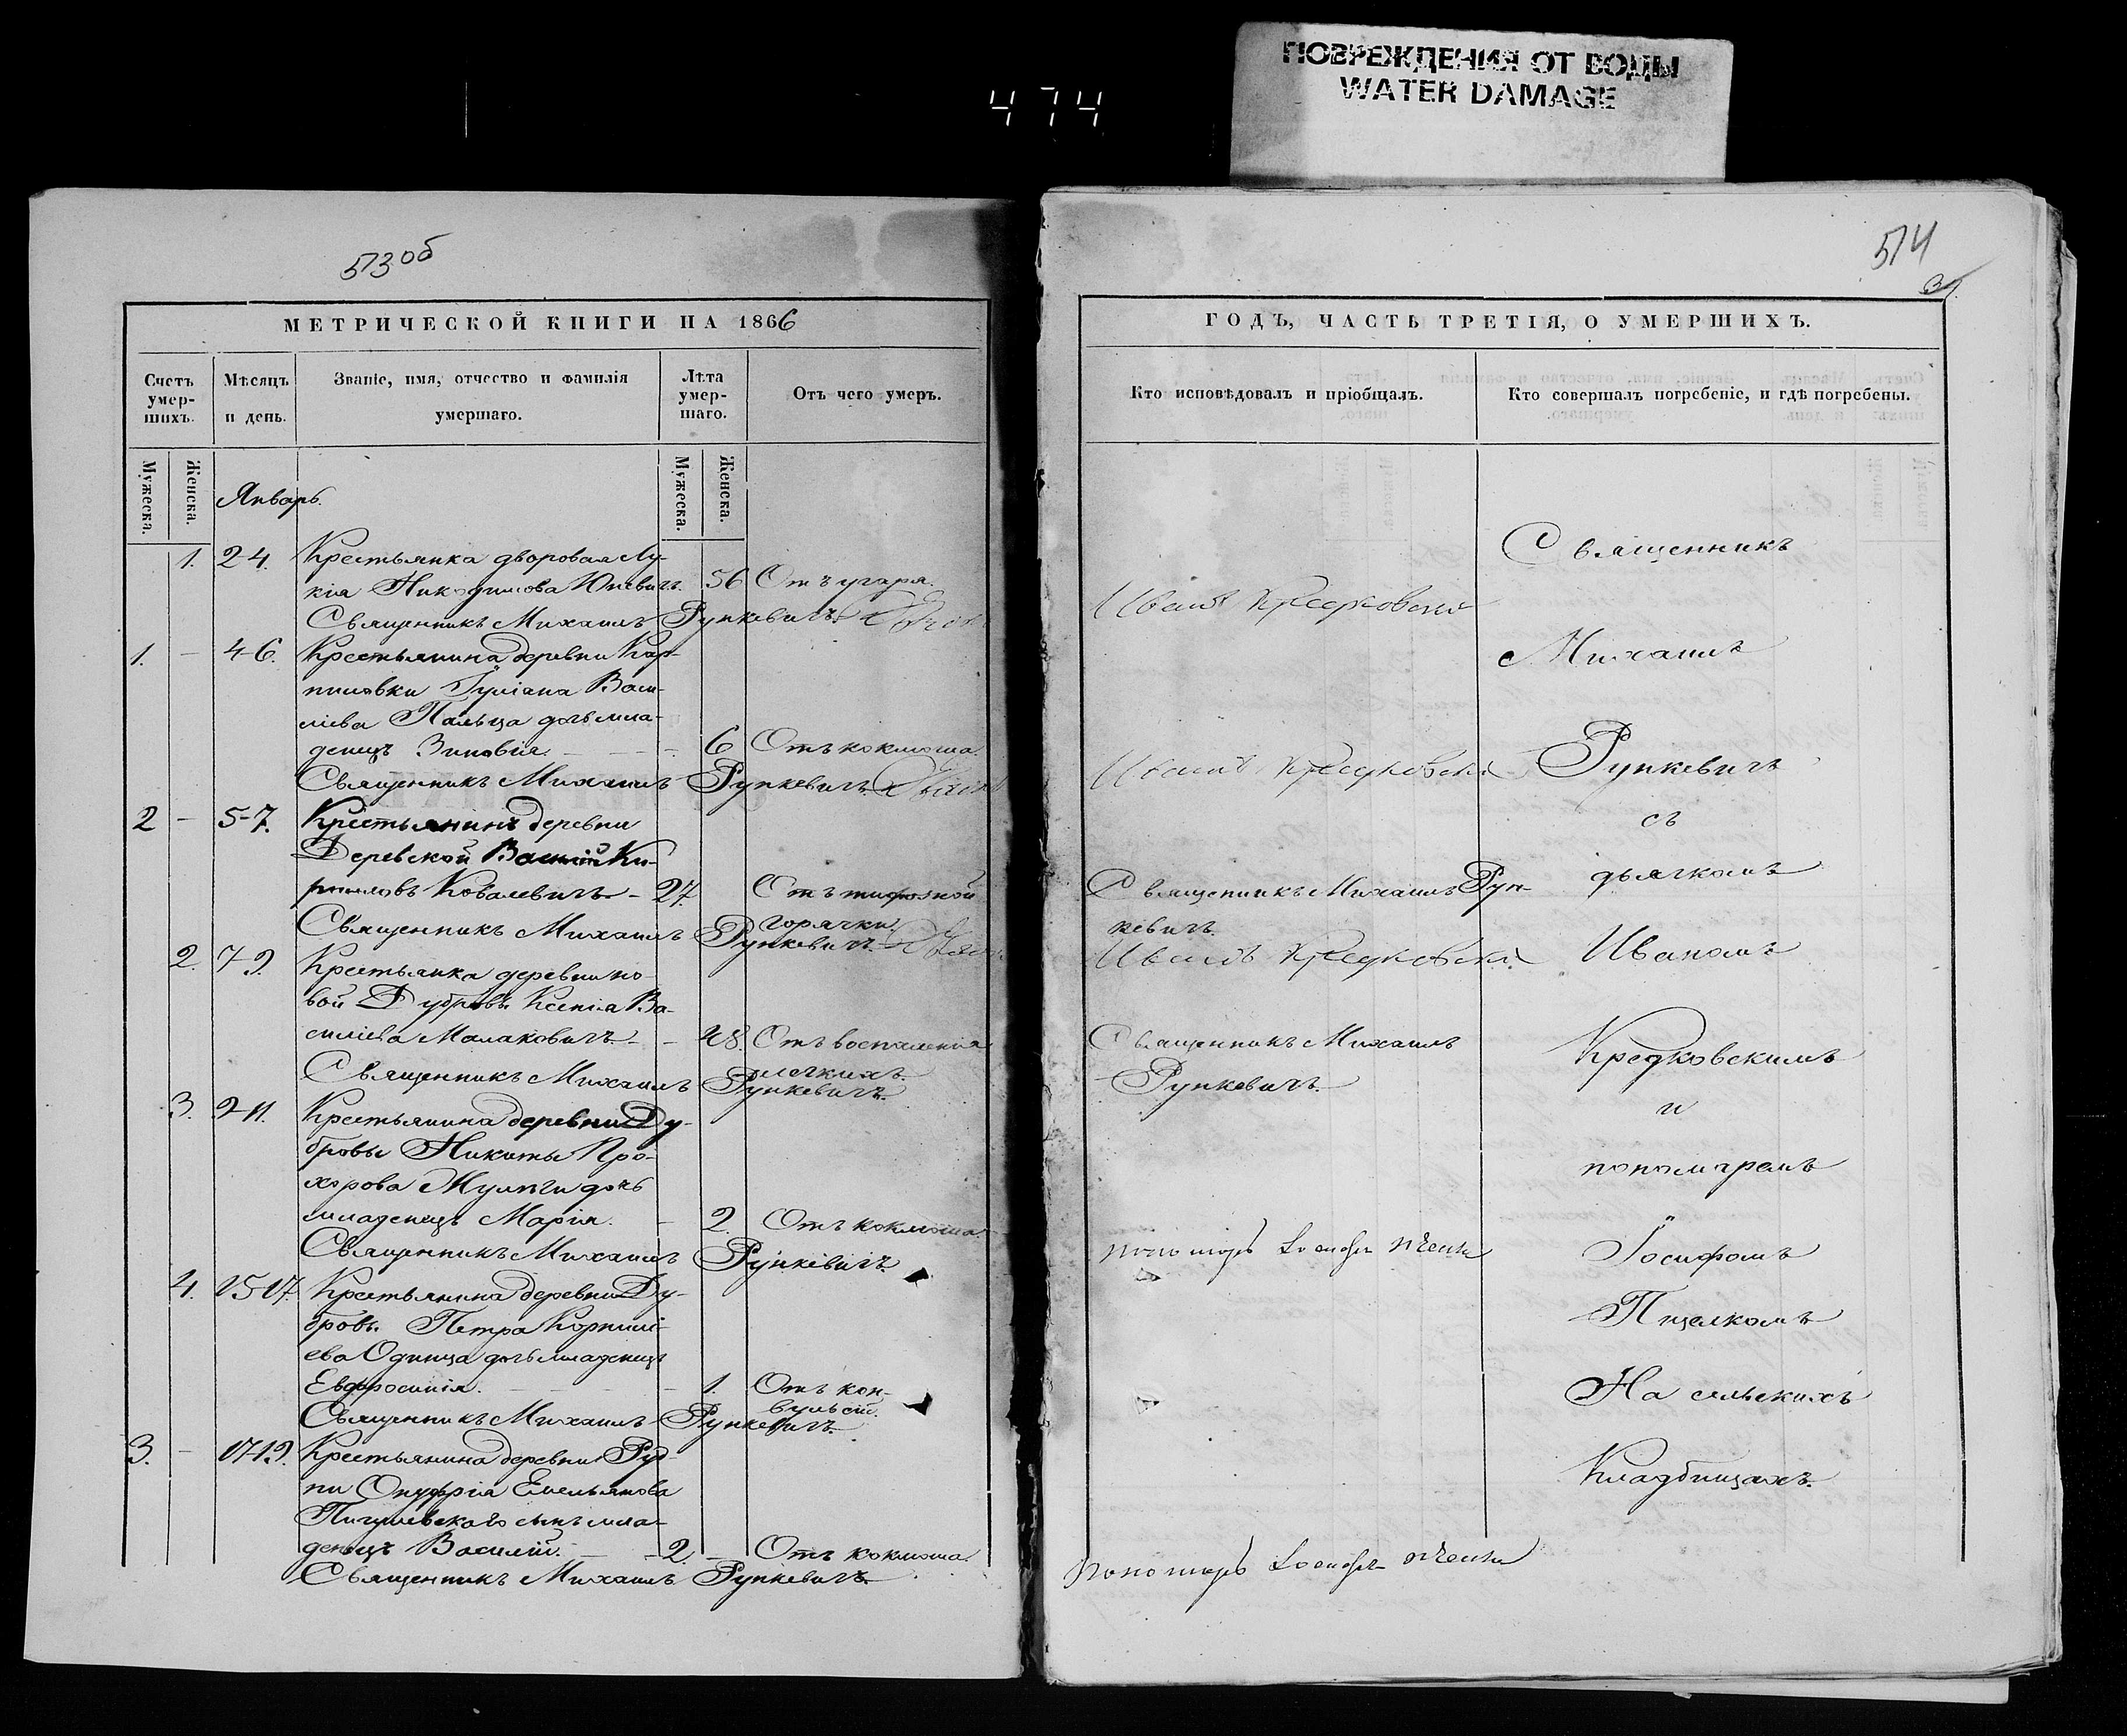 ПОВРЕЖДЕНИЯ ОТ ВОДЫ
WATER DAMAGE
474
573 об
574
МЕТРИЧЕСКОЙ КНИГИ НА 1866
Счетъ умер-шихъ.
Мѣсяцъ и день.
Званіе, имя, отчество и фамилія умершаго.
Лѣта умер-шаго.
Отъ чего умеръ.
Мужеска.
Женска.
Мужеска.
Женска.
Январь.
1. 2-4. Крестьянка дворовая Лу-
кія Никодимова Юневичъ. 56 Отъ угара.
Священникъ Михаилъ Рункевичъ.
1. - 4-6. Крестьянина деревни Кар-
пиловки Іуліана Васи-
лiева Пальца дочь мла-
денецъ Зиновія. - 6 Отъ коклюша.
Священникъ Михаилъ Рункевичъ.
2 - 5-7. Крестьянинъ деревни
Деревской Василій Ки-
рилловъ Ковалевичъ - 27. Отъ тифозной
горячки.
Священникъ Михаилъ Рункевичъ.
2. 7-9. Крестьянка деревни но-
вой Дубровы Ксенія Ва-
силіева Малаковичъ. - 48. Отъ воспаленія
легкихъ.
Священникъ Михаилъ Рункевичъ.
3. 9-11. Крестьянина деревни Ду-
бровы Никиты Про-
хорова дочь
младенецъ Марія. - 2. Отъ коклюша.
Священникъ Михаилъ Рункевичъ.
4. 15-17. Крестьянина деревни Ду-
бровы Петра Корнилі-
ева Одинца дочь младенецъ
Евфросинія. - 1. Отъ кон-
вульсій.
Священникъ Михаилъ Рункевичъ.
3. - 17-19. Крестьянина деревни Руд-
ни Онуфрія Емельянова
Пигулевскаго сынъ мла-
денецъ Василій. - 2 - Отъ коклюша.
Священникъ Михаилъ Рункевичъ.
ГОДЪ, ЧАСТЬ ТРЕТІЯ, О УМЕРШИХЪ.
Кто исповѣдовалъ и пріобщалъ.
Кто совершалъ погребеніе, и гдѣ погребены.
Иванъ Кредковскій
Иванъ Кредковскій
Священникъ Михаилъ Рун-
кевичъ.
Иванъ Кредковскій
Священникъ Михаилъ
Рункевичъ.
Пономарь Іосифъ
Пономарь Іосифъ
Священникъ
Михаилъ
Рункевичъ
съ
дьячкомъ
Иваномъ
Кредковскимъ
и
пономаремъ
Іосифомъ
Пщелкомъ
На сельскихъ
Кладбищахъ.